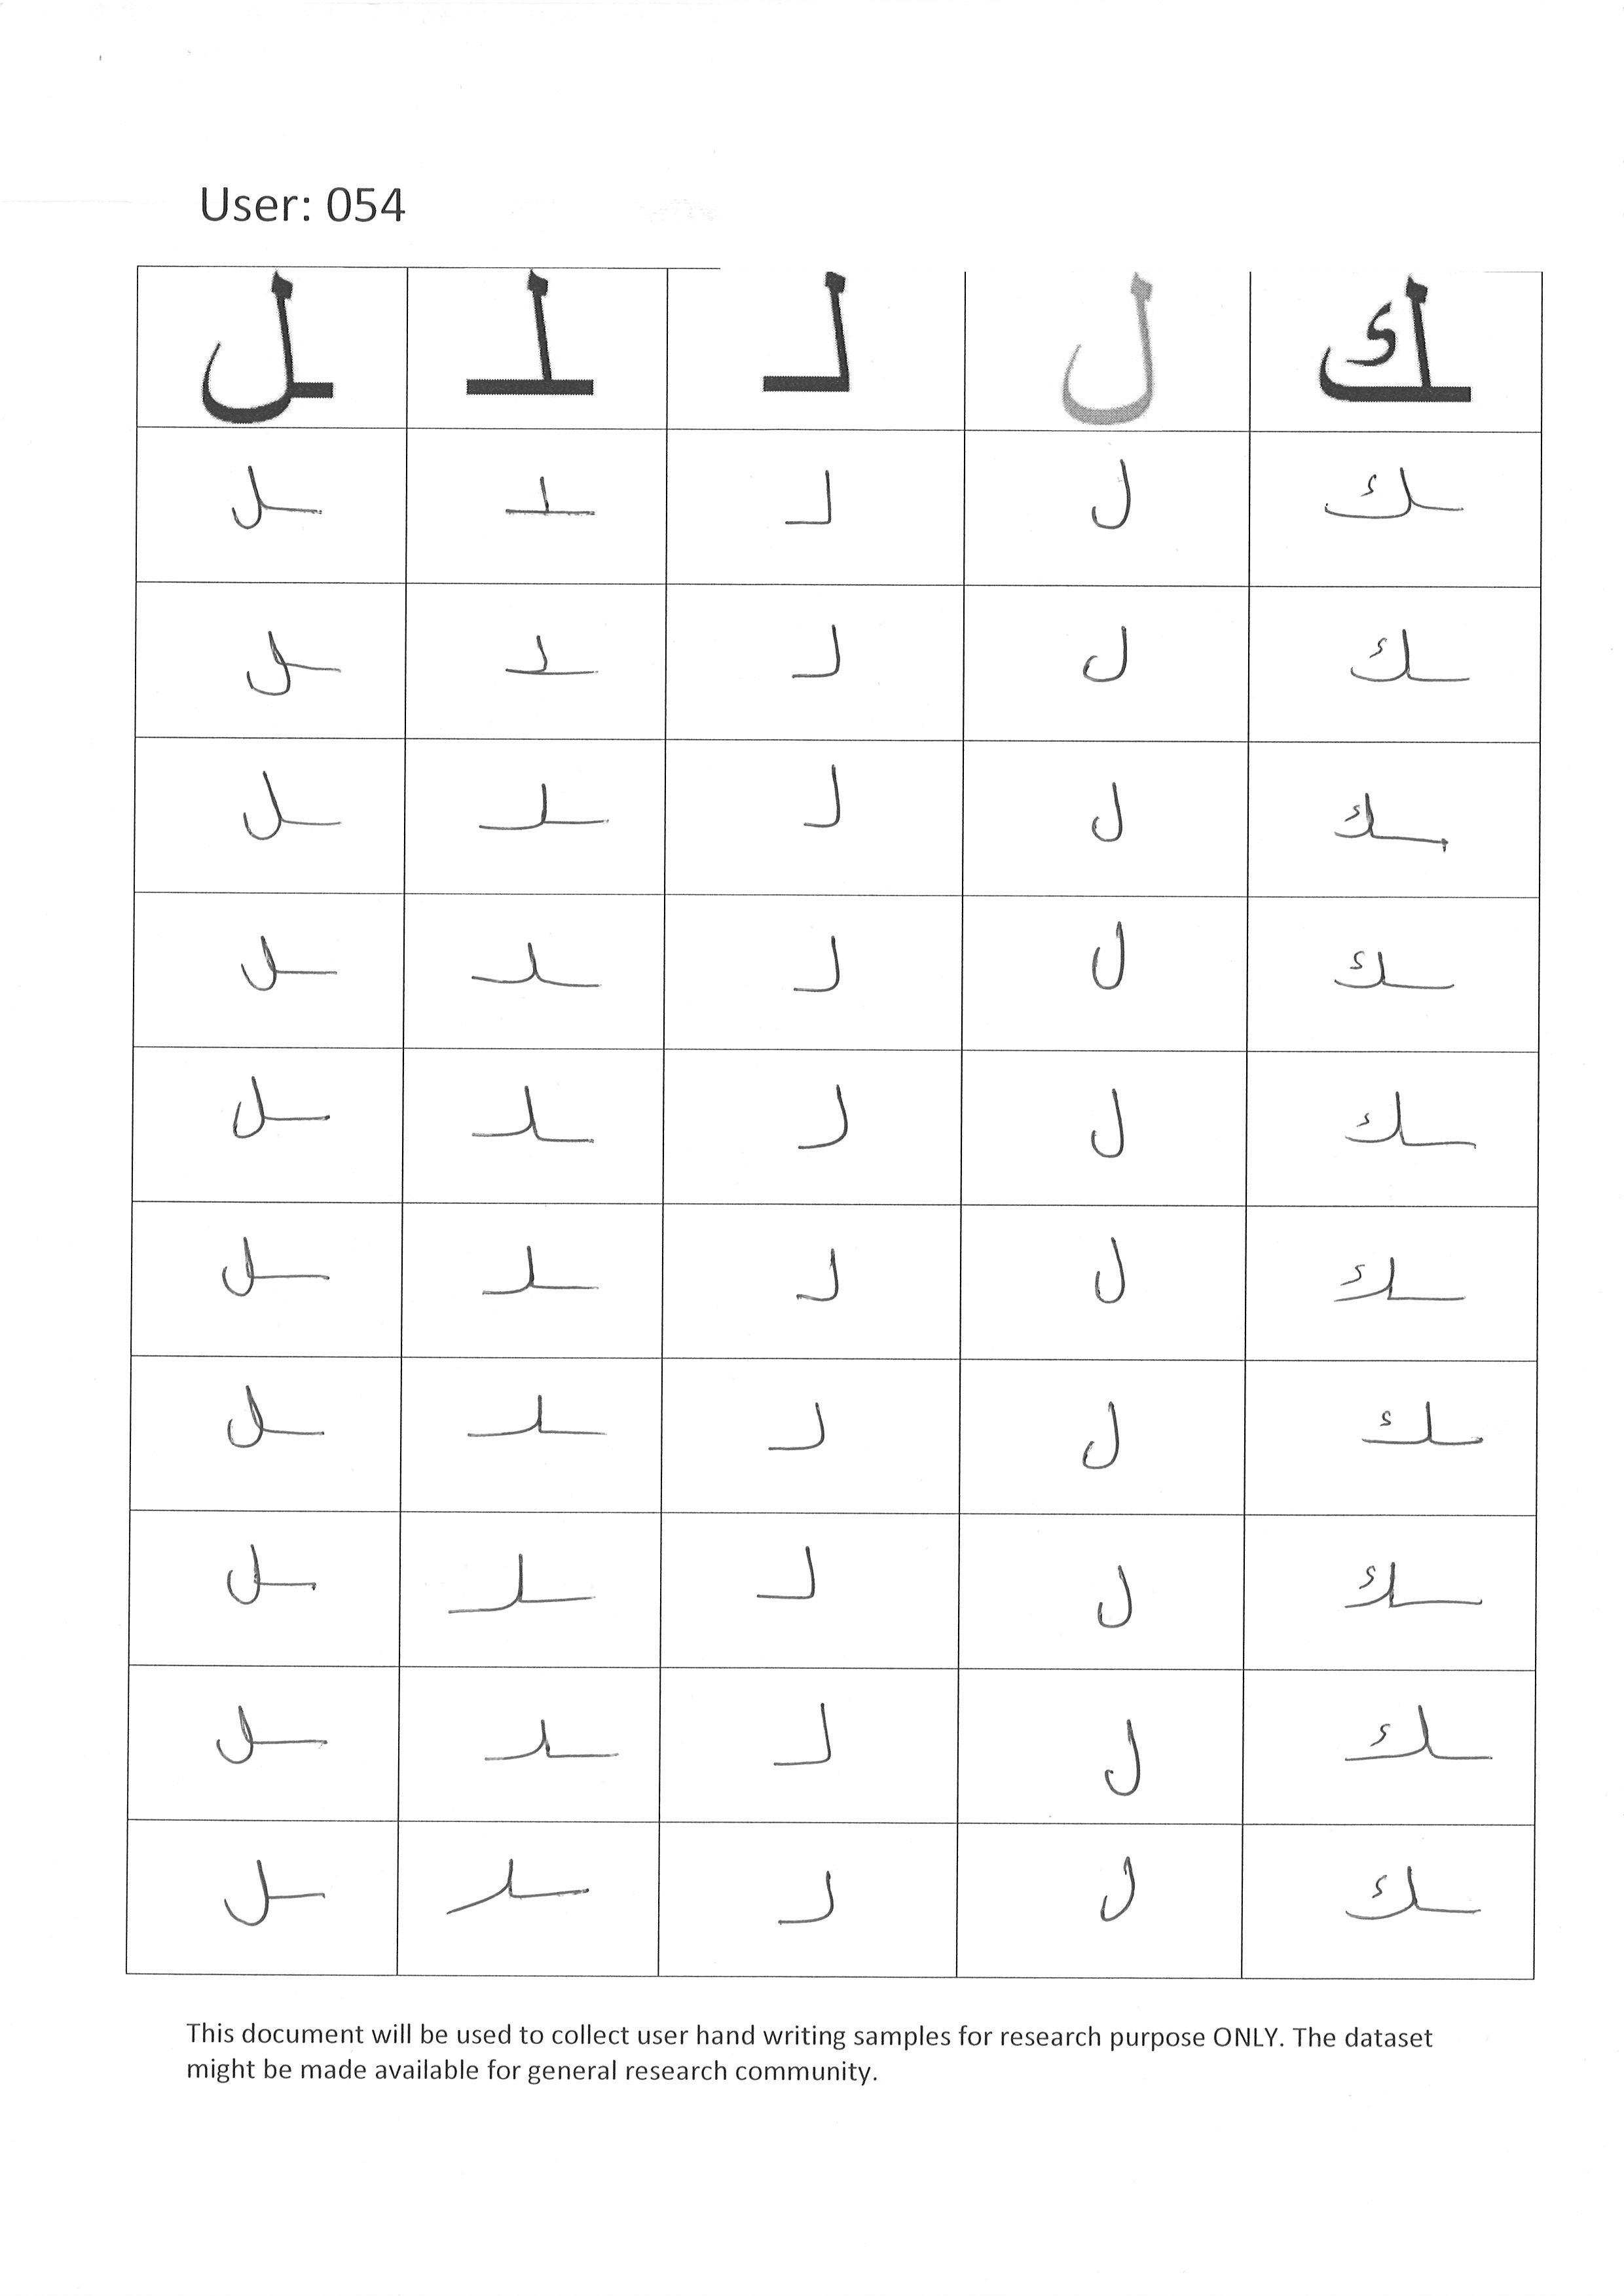 User: 054
ـل ـلـ لـ ل ـك
ـل ـلـ لـ ل ـك
ـل ـلـ لـ ل ـك
ـل ـلـ لـ ل ـك
ـل ـلـ لـ ل ـك
ـل ـلـ لـ ل ـك
ـل ـلـ لـ ل ـك
ـل ـلـ لـ ل ـك
ـل ـلـ لـ ل ـك
ـل ـلـ لـ ل ـك
ـل ـلـ لـ ل ـك
This document will be used to collect user hand writing samples for research purpose ONLY. The dataset
might be made available for general research community.